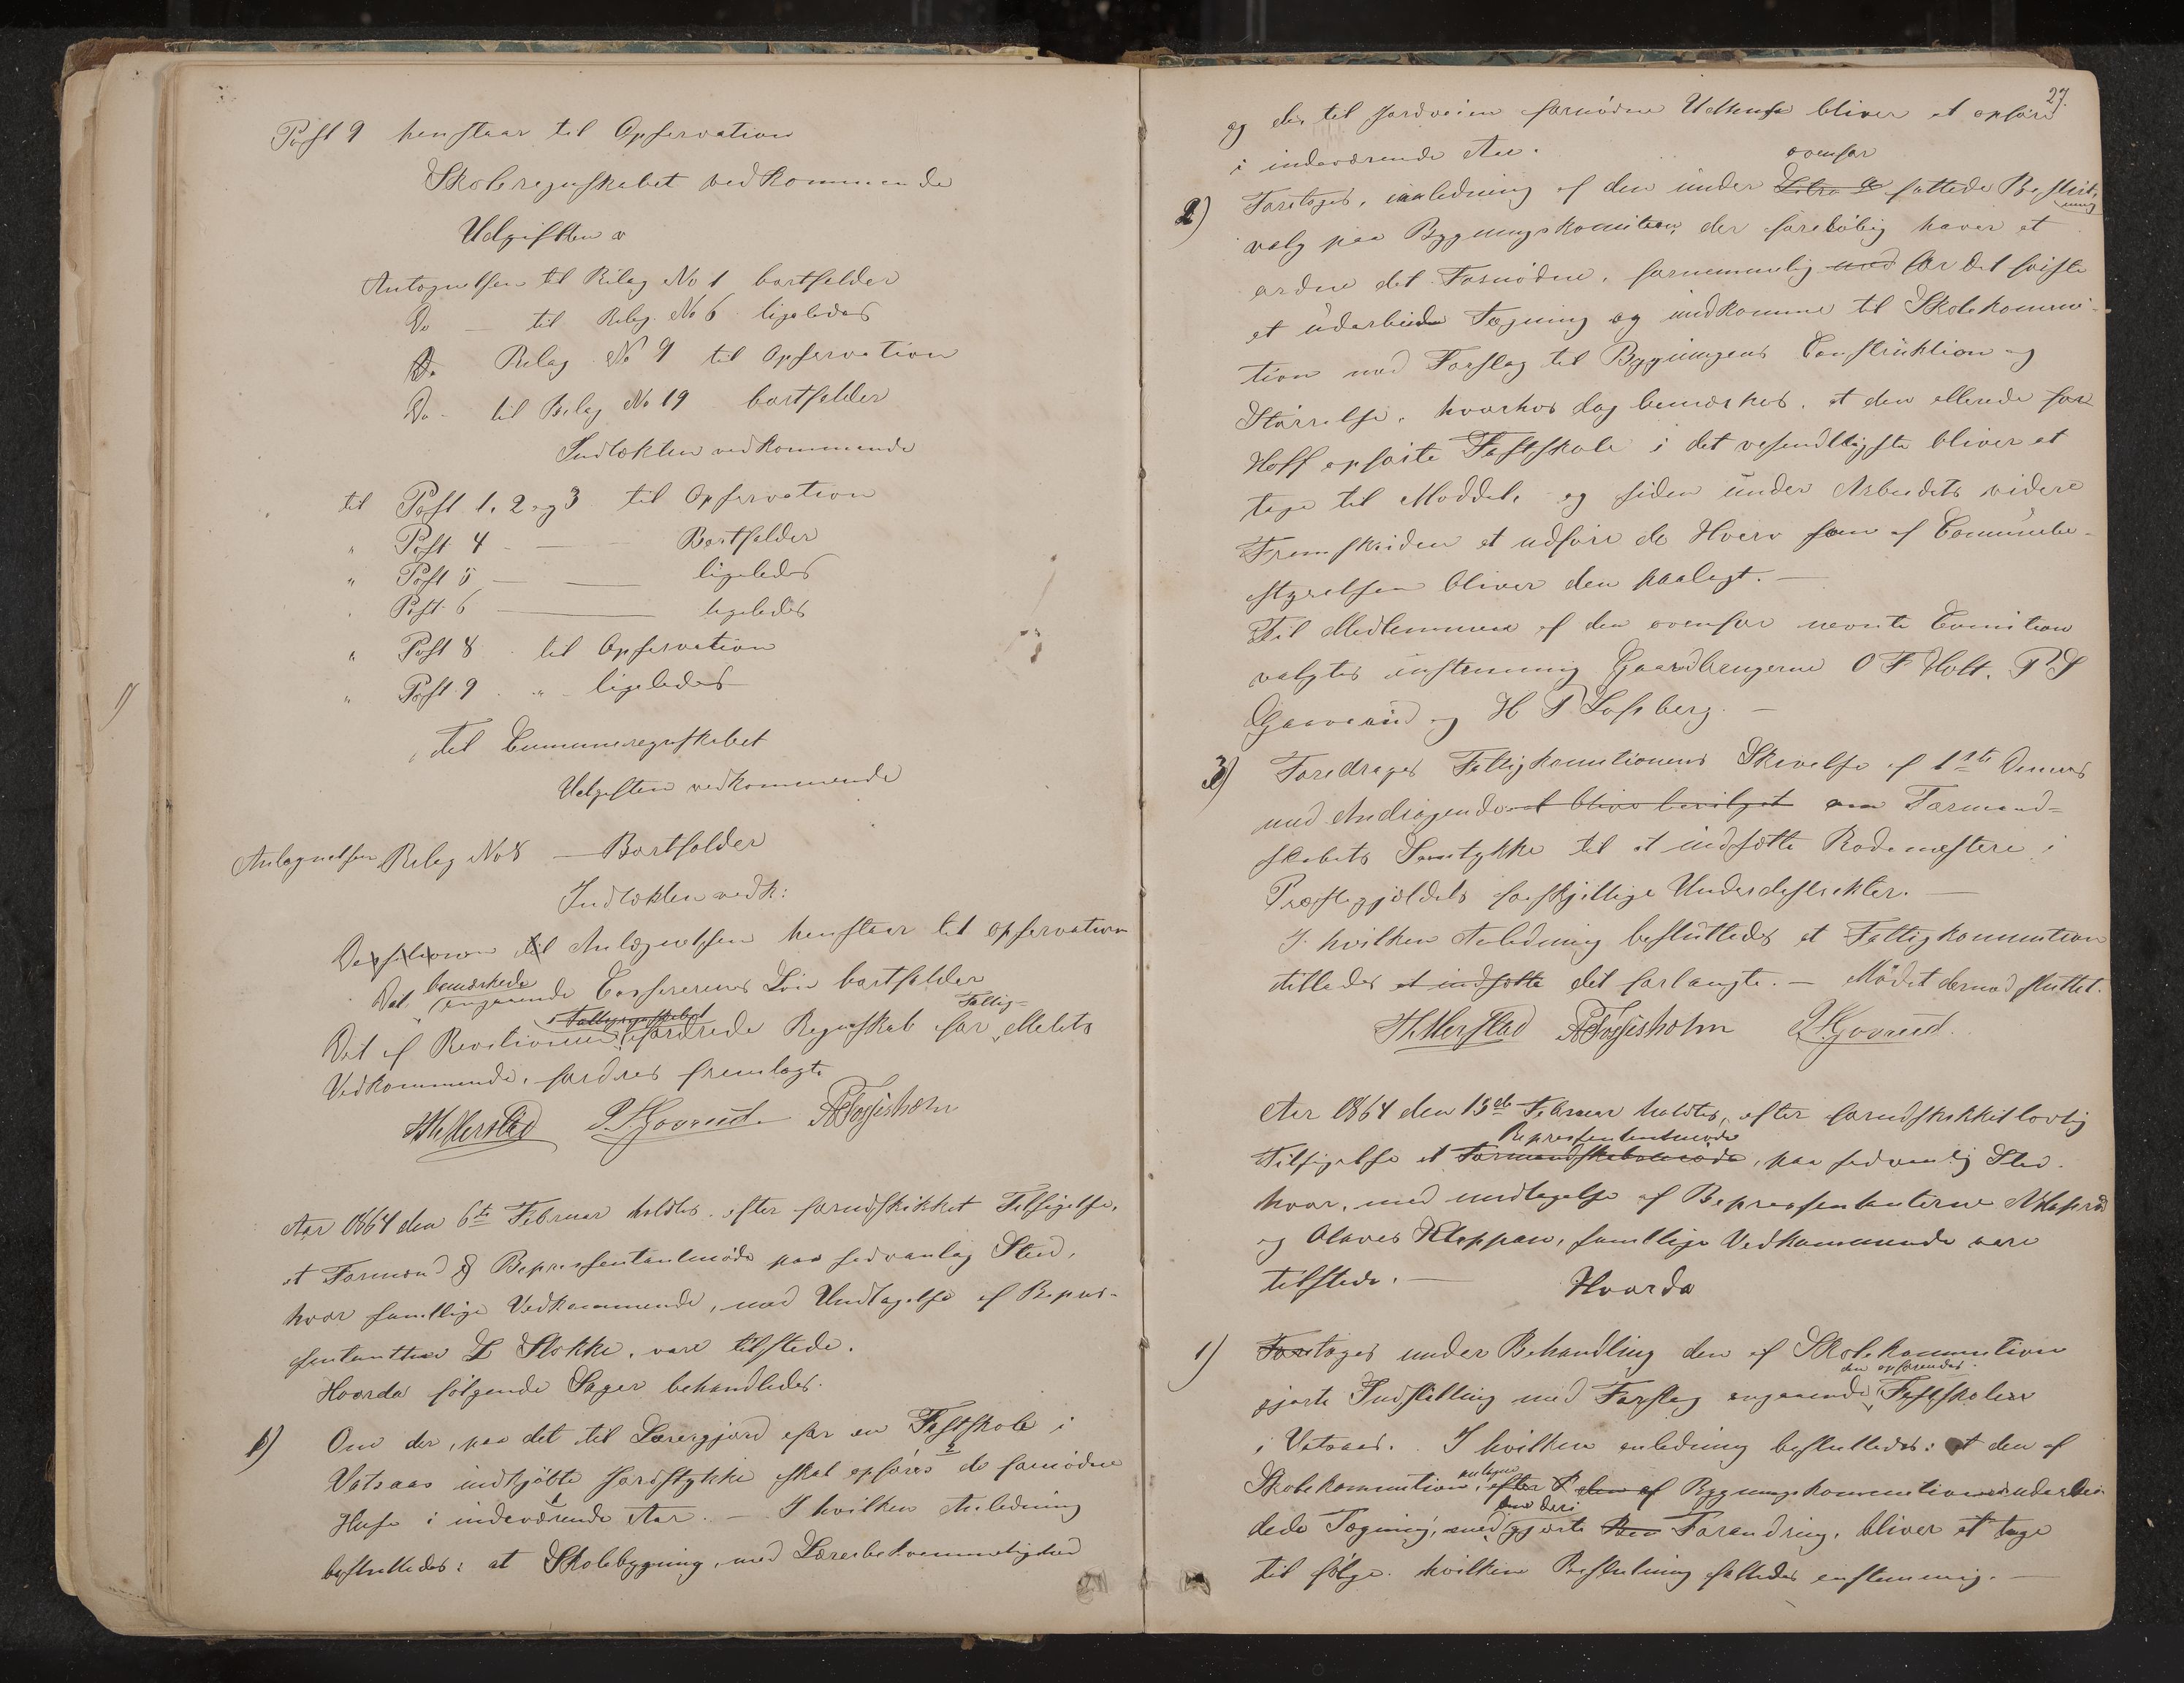 Post 9 henstaar til Opservation
Skoleregnskabet vedkommende
Udgiften
Antegnelsen til Bilag No 1 bortfalder
Do — til Bilag No 6 ligeledes
Do Bilag No 9 til Opservation
Do - til Bilag No 19 bortfalder
Indtækten vedkommende
til Post 1, 2 og 3 til Opservation
" Post 4 — Bortfalder
" Post 5 — — ligeledes
" Post 6 — ligeledes
" Post 8 til Opservation
" Post 9 " ligeledes
til Communeregnskabet
Udgiften vedkommende
Antegnelsen Bilag No 8 — Bortfalder
Indtækten vedk:
Antegnelsen henstaar til Opservation
Det bemærkede angaaende Cassererens Løn bortfalder
Det af Revisionen fordrede Regnskab for Fattig-Melets
Vedkommende, fordres fremlagte
H Herstad P. S. Gaarud
Aar 1864 den 6te Februar holdtes efter forudskikket Tilsigelse,
et Formand & Repræsentantmøde paa sedvanlig Sted,
hvor samtlige Vedkommende, med Undtagelse af Repræ-
sentanten L Stokke, vare tilstede.
Hvorda følgende Sager behandledes.
1) Om der, paa det til Lærergjord for en Fastskole i
Vatsaas indkjøbte Jordstykke skal opføres de fornødne
Huse i indeværende Aar. — I hvilken Anledning
besluttedes: at Skolebygning, med Lærerbekvemmelighed
27.
og de til Jordveien fornødne Udhuse bliver at opføre
i indeværende Aar.
2) Foretoges, i anledning af den under Litra ovenfor fattede Beslut-
ning
valg paa Bygningskomiteen, der foreløbig haver at
ordne det Fornødne, fornemmelig med for det første
at udarbeide Tegning og indkomme til Skolekommi-
tion med Forslag til Bygningens Construktion og
Størrelse, hvorhos dog bemærkes, at den allerede for
Hoff opførte Fastskole i det vesendtligste bliver at
tage til Moddel, og siden under Arbeidets videre
Fremskriden at udføre de Hverv som af Communebe-
styrelsen bliver den paalagt. —
Til Medlemmer af den ovenfor nevnte Comiteen
valgtes enstemmig Gaardbrugerne O F Holt, P S
Gaarud og H P Losberg. —
3) Foredrages Fattigkomitionens Skrivelse af 1ste Dennes
med Andragende at blive bevilget om Formand-
skabets Samtykke til at indsætte Rodemestere i
Præstegjældets forskjellige Underdistrikter. —
I hvilken Anledning besluttedes at Fattigkommition
tillades at indsætte det forlangte. — Mødet dermed sluttet.
H Herstad P. S. Gaarud.
Aar 1864 den 13de Februar holdtes, efter forudskikket lovlig
Tilsigelse et Formandskabsmøde Repræsentantmøde, paa sedvanlig Sted.
hvor, med undtagelse af Repræsentanterne
og Olaves Kleppan, samtlige Vedkommende vare
tilstede. — Hvorda
1) Foretoges under Behandling den af Skolekommition
gjorte Indstilling med Forslag angaaende den opførendes Fastskolen
i Vatsaas. I hvilken anledning besluttedes: at den af
Skolekommition antagne, efter den af Bygningskommitionen udarbei-
dede Tegning, med den deri gjorte Forandring, bliver at tage
til følge. hvilken Beslutning fattedes enstemmig. —